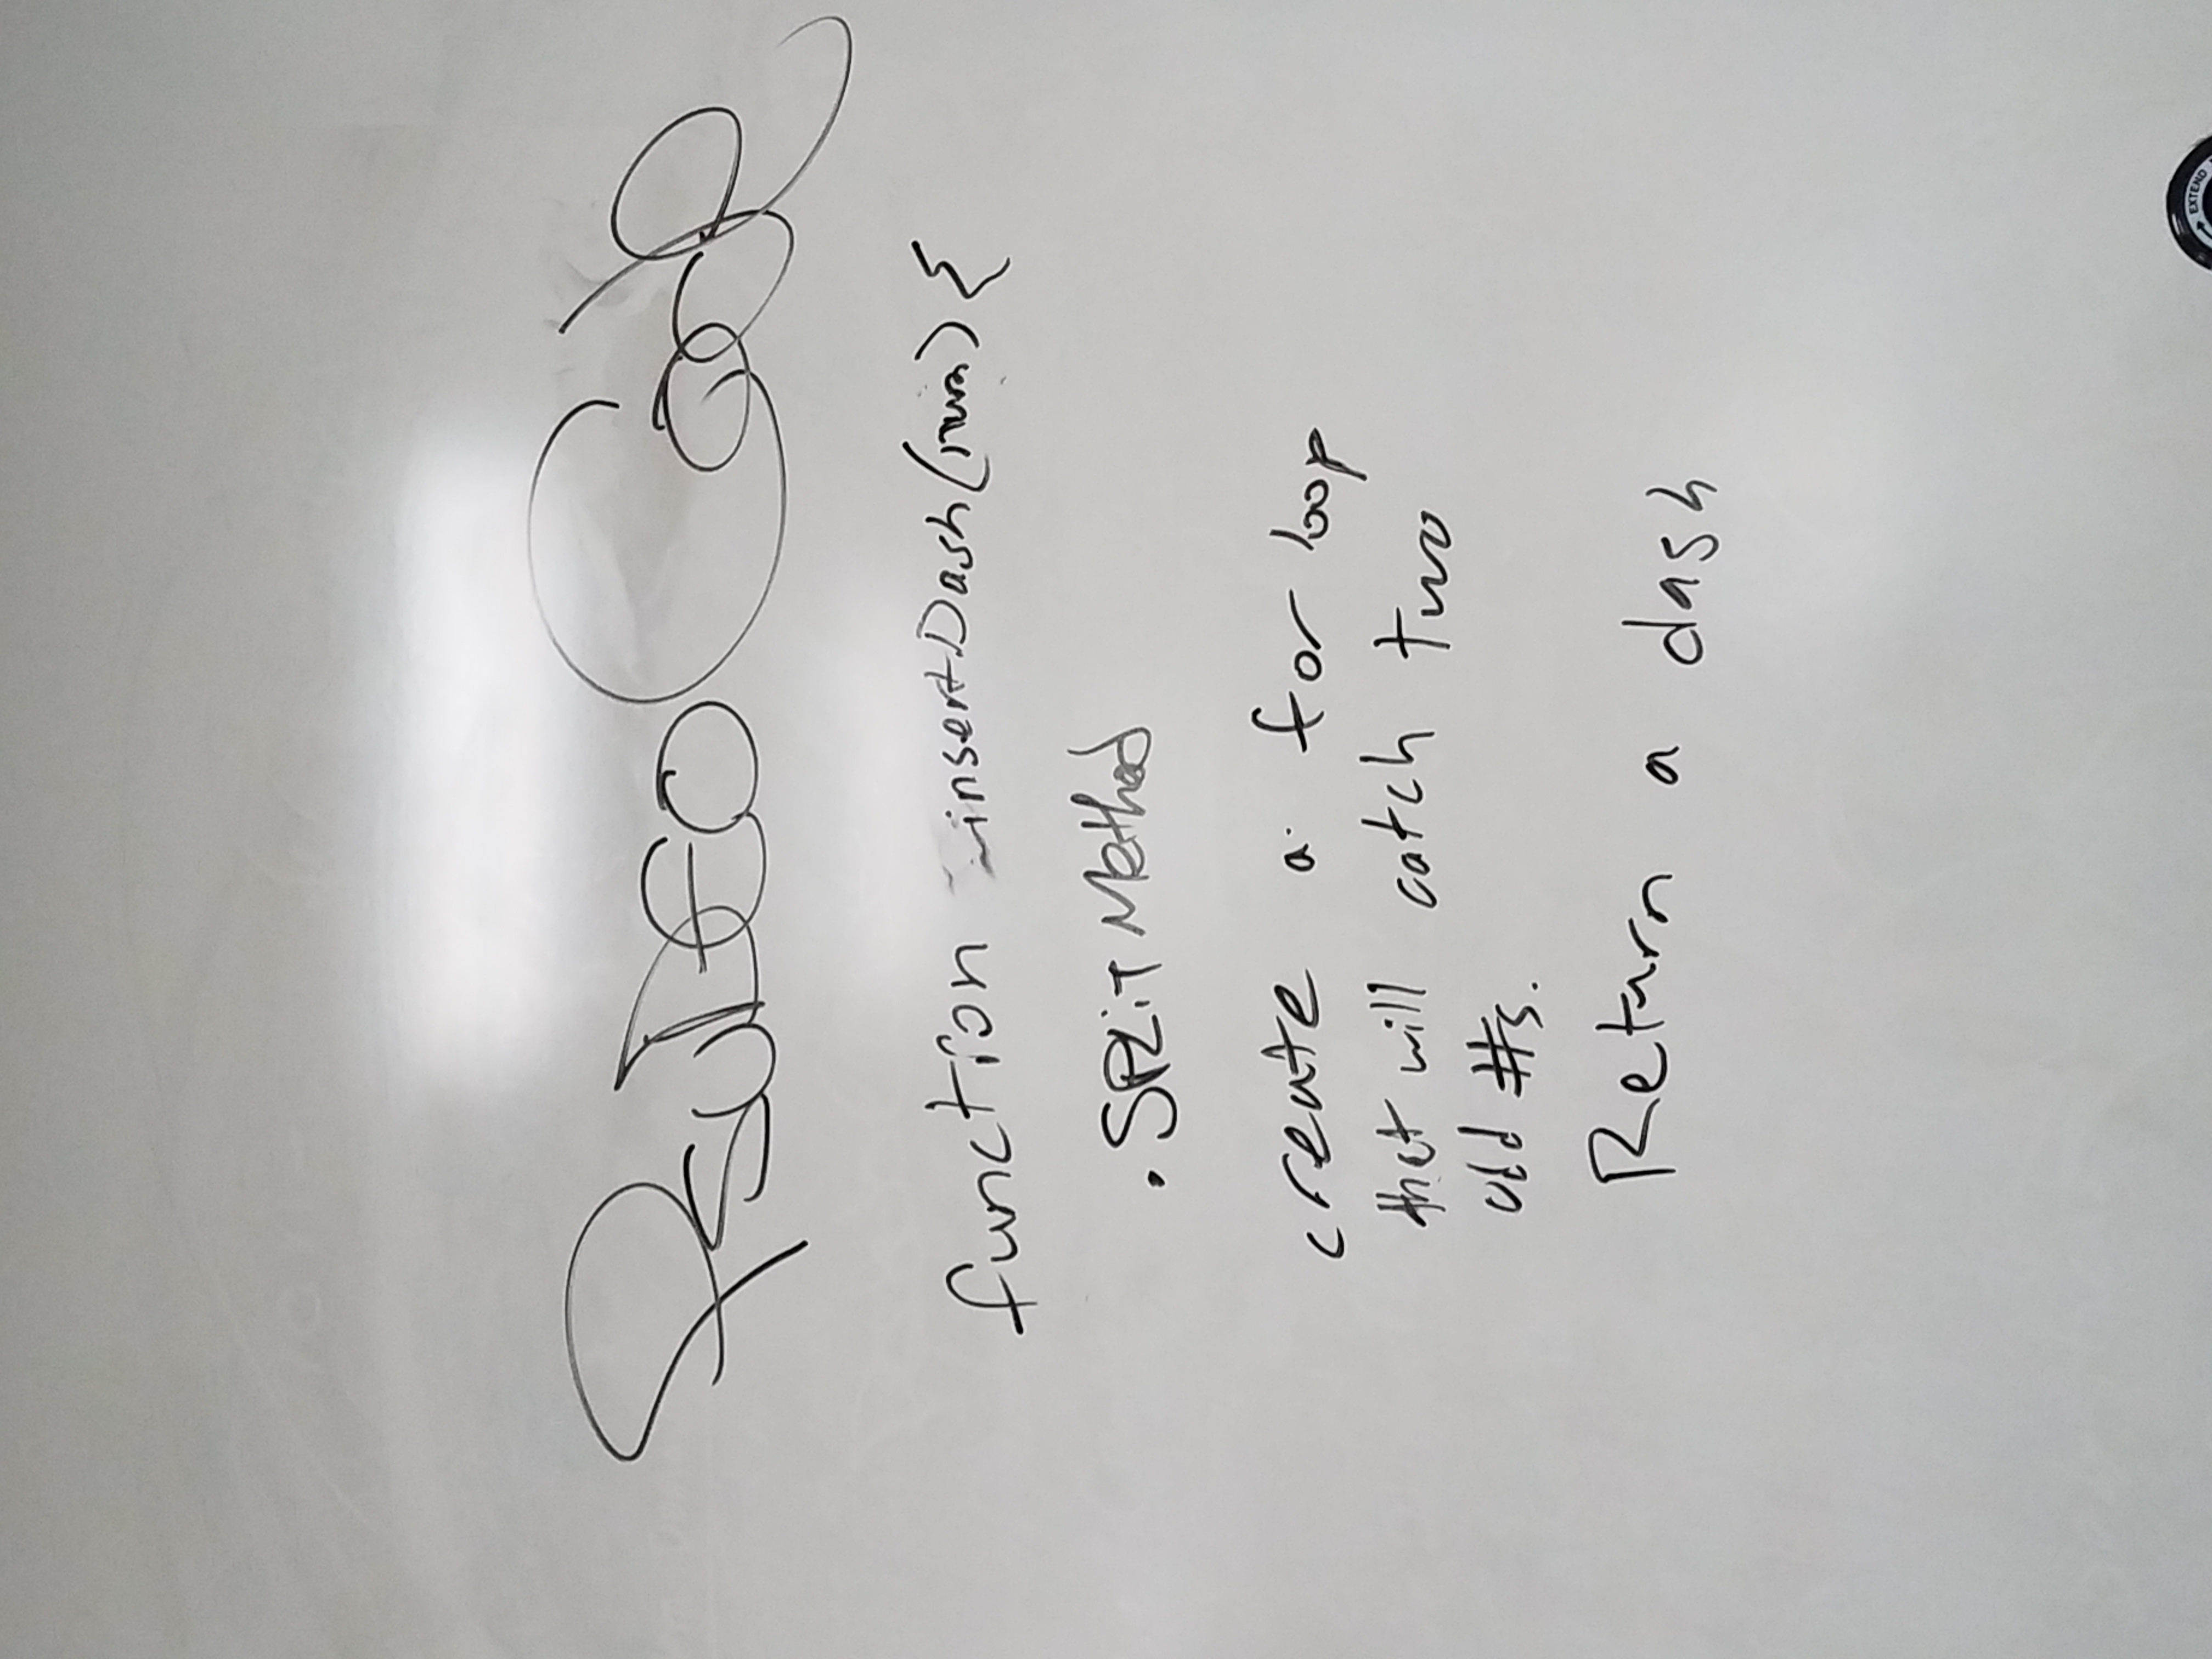 PSUDEO Code
function insertDash(num) {
. SPLiT Method
create a for loop
that will catch two
odd #s.
Return a dash
EXTEND